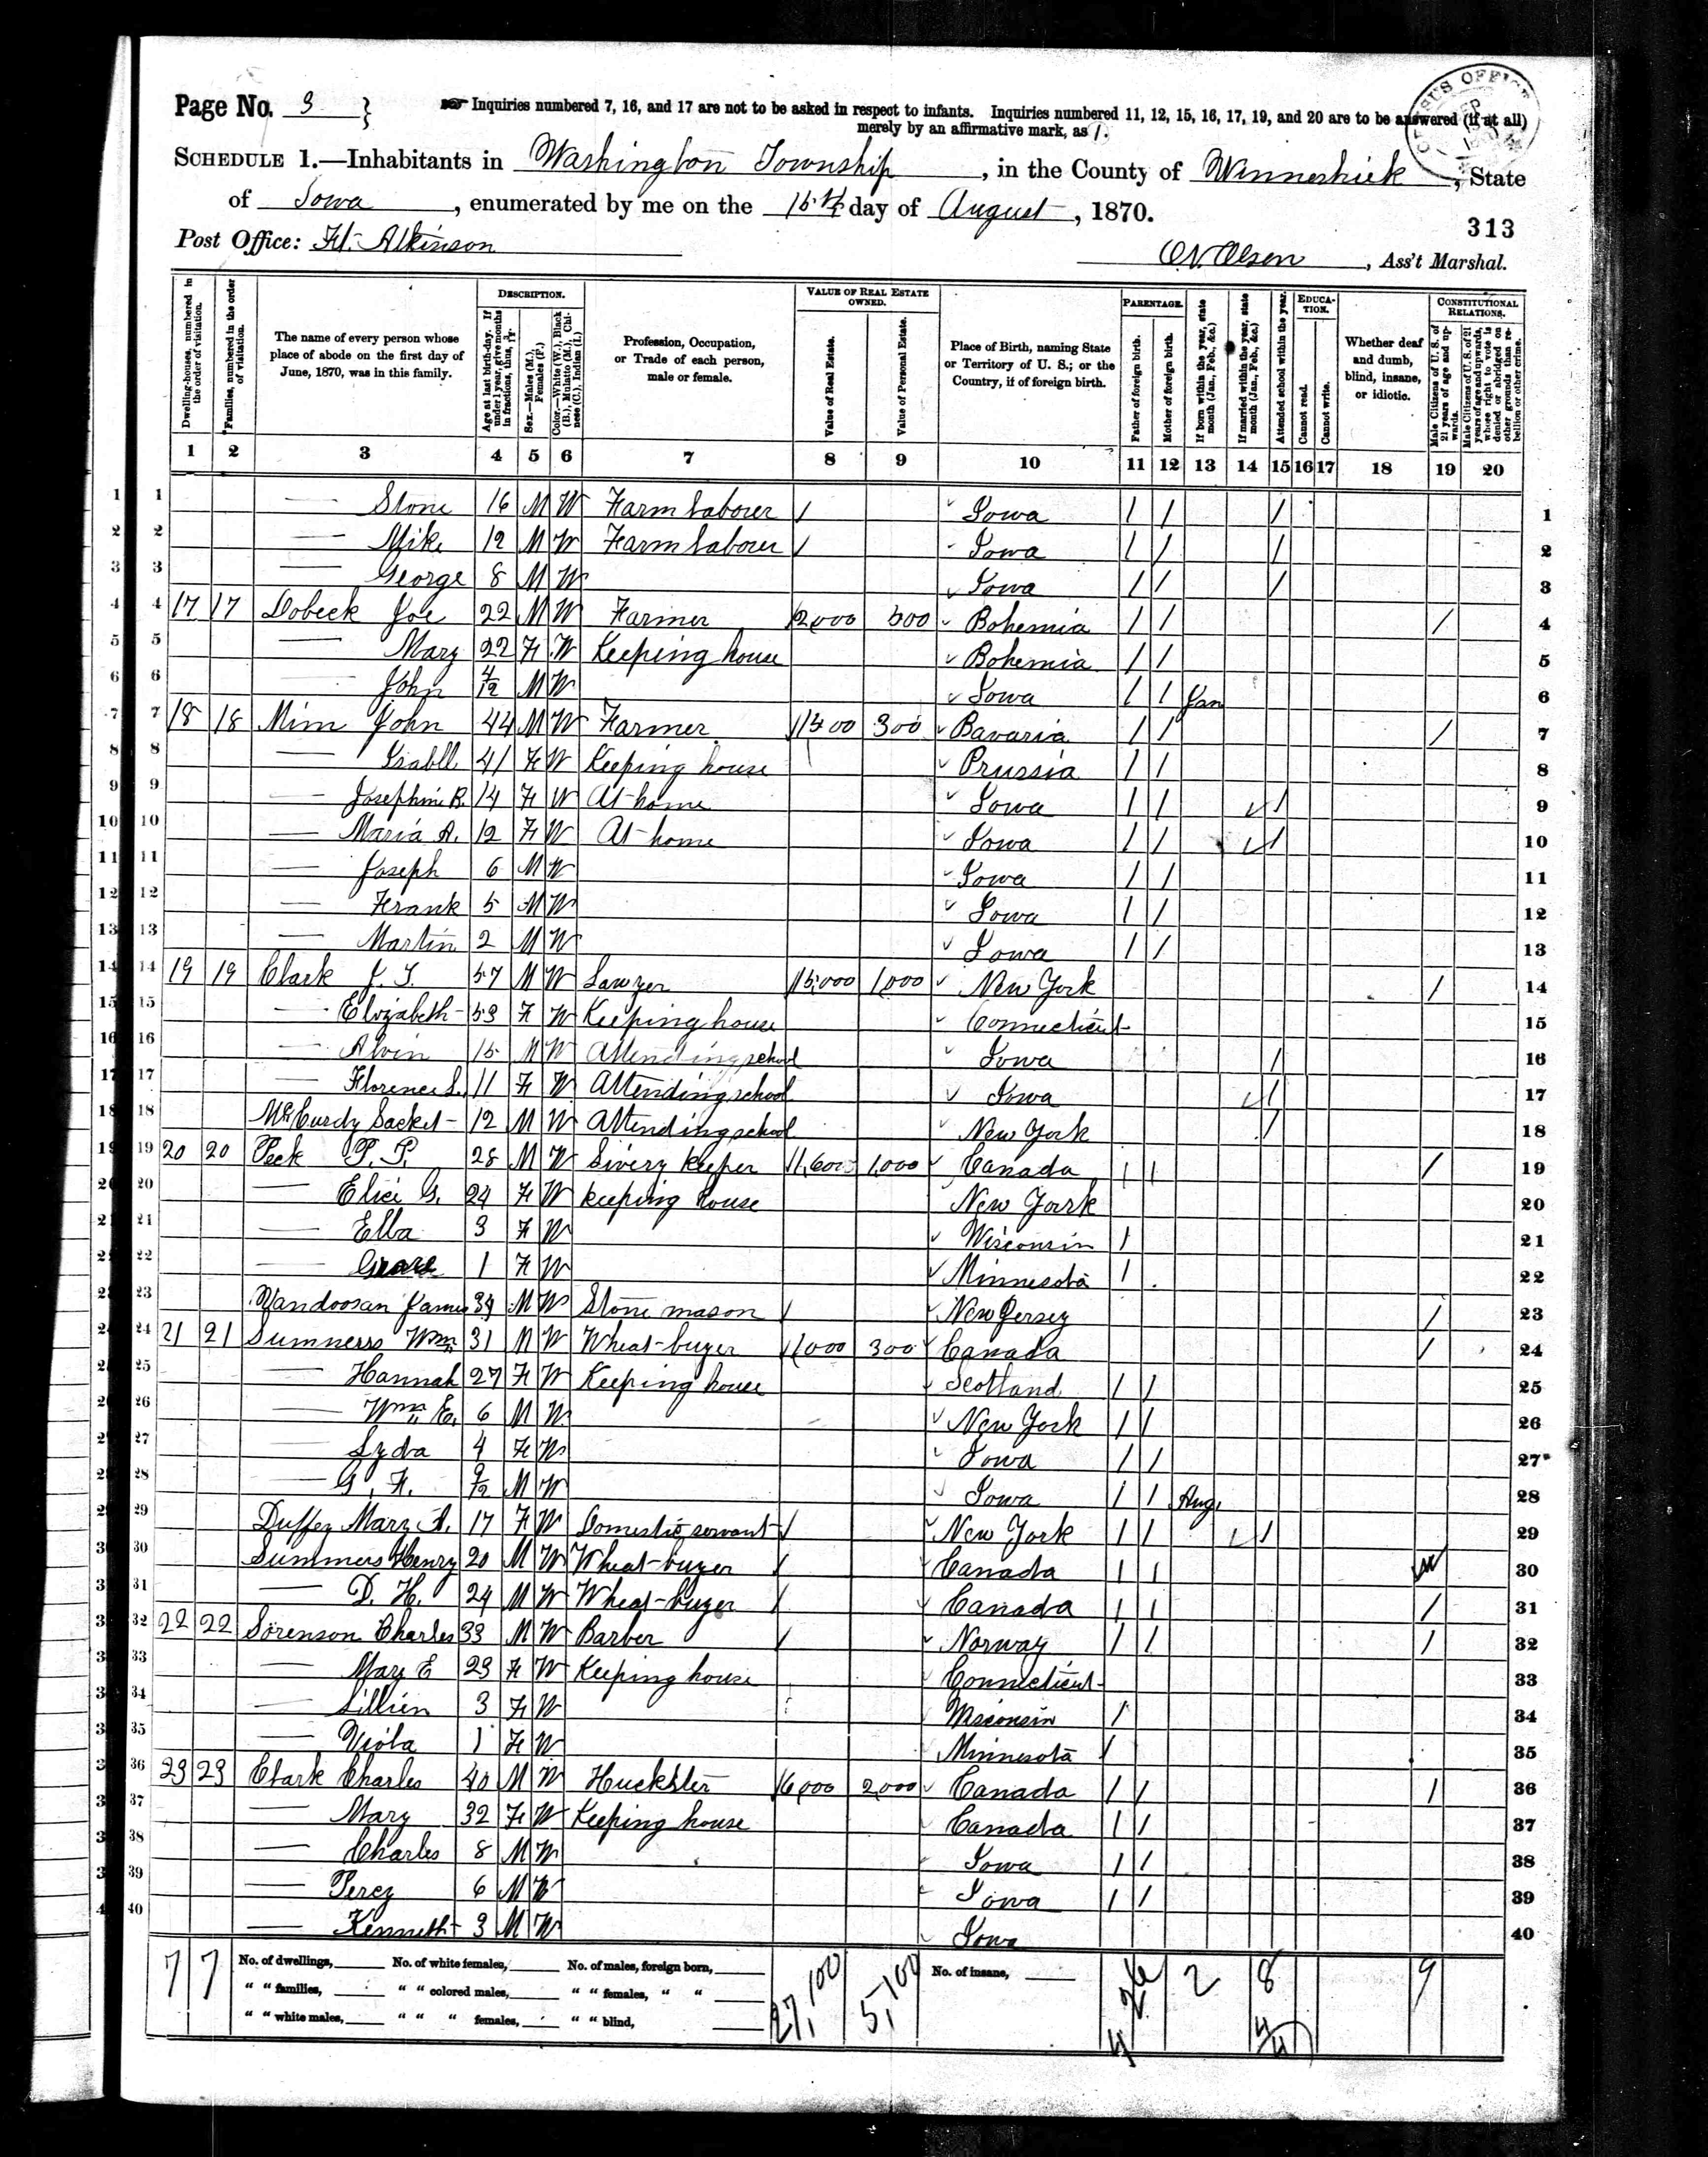 Page No. 3 } Inquiries numbered 7, 16, and 17 are not to be asked in respect to infants. Inquiries numbered 11, 12, 15, 16, 17, 19, and 20 are to be answered (if at all)
merely by an affirmative mark, as /.
SCHEDULE 1.—Inhabitants in Washington Township, in the County of Winneshiek, State
of Iowa, enumerated by me on the 15th day of August, 1870.
313
Post Office: Ft. Atkinson
O.N. Olsen, Ass't Marshal.
Dwelling-houses, numbered in the order of visitation.
Families, numbered in the order of visitation.
The name of every person whose place of abode on the first day of June, 1870, was in this family.
DESCRIPTION.
Age at last birth-day. If under 1 year, give months in fractions, thus, 3/12.
Sex.—Males (M.), Females (F.)
Color.—White (W.), Black (B.), Mulatto (M.), Chinese (C.), Indian (I.)
Profession, Occupation, or Trade of each person, male or female.
VALUE OF REAL ESTATE OWNED.
Value of Real Estate.
Value of Personal Estate.
Place of Birth, naming State or Territory of U. S.; or the Country, if of foreign birth.
PARENTAGE.
Father of foreign birth.
Mother of foreign birth.
If born within the year, state month (Jan., Feb., &c.)
If married within the year, state month (Jan., Feb., &c.)
Attended school within the year.
EDUCATION.
Cannot read.
Cannot write.
Whether deaf and dumb, blind, insane, or idiotic.
CONSTITUTIONAL RELATIONS.
Male Citizens of U. S. of 21 years of age and upwards.
Male Citizens of U. S. of 21 years of age and upwards, whose right to vote is denied or abridged on other grounds than rebellion or other crime.
1 2 3 4 5 6 7 8 9 10 11 12 13 14 15 16 17 18 19 20
1 — Stone 16 M W Farm Labourer Iowa / / / 1
2 — Mike 12 M W Farm Labourer Iowa / / / 2
3 — George 8 M W Iowa / / / 3
4 17 17 Dobeck Joe 22 M W Farmer 2,000 500 Bohemia / / / 4
5 — Mary 22 F W Keeping house Bohemia / / 5
6 — John 4/12 M W Iowa / / Jan 6
7 18 18 Mim John 44 M W Farmer 1500 300 Bavaria / / / 7
8 — Isabll. 41 F W Keeping house Prussia / / 8
9 — Josephine B. 14 F W At home Iowa / / / 9
10 — Maria A. 12 F W At home Iowa / / / 10
11 — Joseph 6 M W Iowa / / 11
12 — Frank 5 M W Iowa / / 12
13 — Martin 2 M W Iowa / / 13
14 19 19 Clark J. T. 57 M W Lawyer 15,000 1,000 New York / 14
15 — Elizabeth 53 F W Keeping house Connecticut 15
16 — Alvin 15 M W Attending school Iowa / 16
17 — Florence L. 11 F W Attending school Iowa / 17
18 McCurdy Sacket 12 M W Attending school New York / 18
19 20 20 Peck P. P. 28 M W Livery keeper 1,600 1,000 Canada / / / 19
20 — Elici G. 24 F W keeping house New York 20
21 — Elba 3 F W Wisconsin / 21
22 — Grace 1 F W Minnesota / 22
23 Vandoosan James 39 M W Stone mason New Jersey / 23
24 21 21 Sumners Wm. 31 M W Wheat-buyer 1,000 300 Canada / 24
25 — Hannah 27 F W Keeping house Scotland / / 25
26 — Wm. E. 6 M W New York / / 26
27 — Lyda 4 F W Iowa / / 27
28 — G. F. 9/12 M W Iowa / / Aug. 28
29 Duffey Mary A. 17 F W Domestic servant New York / / / 29
30 Summers Henry 20 M W Wheat-buyer Canada / / 30
31 — D. H. 24 M W Wheat-buyer Canada / / / 31
32 22 22 Sorenson Charles 33 M W Barber Norway / / / 32
33 — Mary E 23 F W Keeping house Connecticut 33
34 — Lillien 3 F W Wisconsin / 34
35 — Viola 1 F W Minnesota / 35
36 23 23 Clark Charles 40 M W Huckster 6,000 2,000 Canada / / / 36
37 — Mary 32 F W Keeping house Canada / / 37
38 — Charles 8 M W Iowa / / 38
39 — Percy 6 M W Iowa / / 39
40 — Kenneth 3 M W Iowa 40
7 7 No. of dwellings, No. of white females, No. of males, foreign born, 27,100 5,100 No. of insane, 26 2 8 9
" " families, " " colored males, " " females, " "
" " white males, " " " females, " " blind,